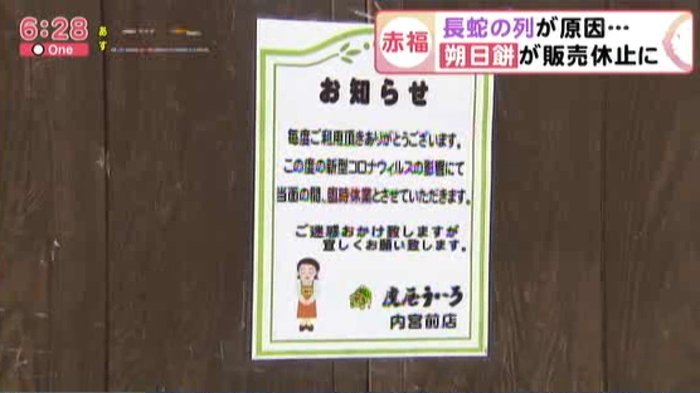 6:28
One
あす
赤福
長蛇の列が原因…
朔日餅が販売休止に
お知らせ
毎度ご利用頂きありがとうございます。
この度の新型コロナウィルスの影響にて
当面の間、臨時休業とさせていただきます。
ご迷惑おかけ致しますが
宜しくお願い致します。
虎屋ういろ
内宮前店